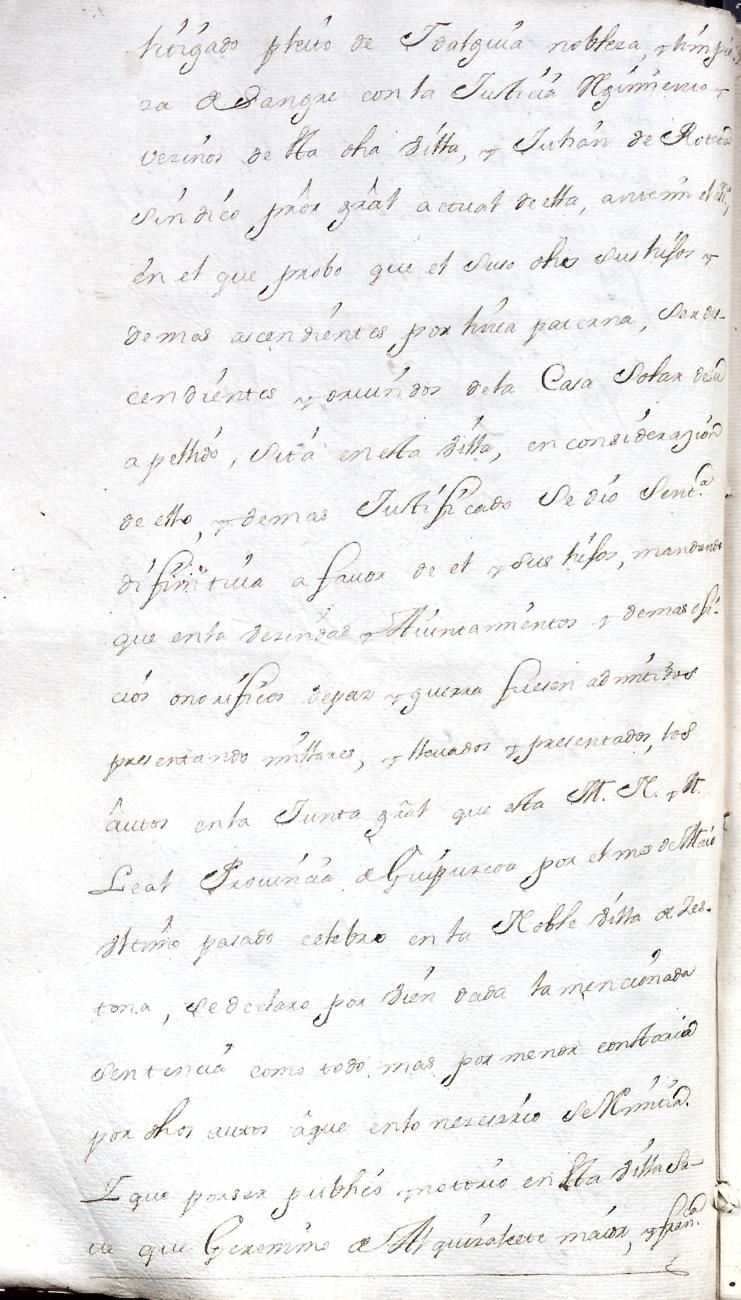 litigado pleito de Idalguia nobleza, y limpie
za de Sangre con la Justicia Regimiento y
vezinos de esta dha Villa, y Julian de
sindico pror gral actual de ella, ante mi el
en el que probo que el suso dho sus hijos y
demas ascendientes por linea paterna, Ser des-
cendientes y oriundos de la Casa Solar de su
apellido, Sita en esta Villa, en considerazion
de ello, y demas Justificado Se dio Senta.
difinitiva a favor de el y sus hijos, mandando
que en la vezindad y Aiuntamientos y demas ofi-
cios onorificos de paz y guerra fuesen admitidos
presentando millares, y llevados y presentados, los
autos en la Junta gral que esta M. N. y M.
Leal Provincia de Guipuzcoa por el mes de Maio
ultimo pasado celebro en la Noble Villa de Zes-
tona, se declaro por bien dada la mencionada
sentencia como todo mas por menor constaria
por dhos autos â que en lo nezesario se Remitia.
I que por ser publico y notorio en esta Villa Sa-
ve que Geronimo de maior, y Franca.